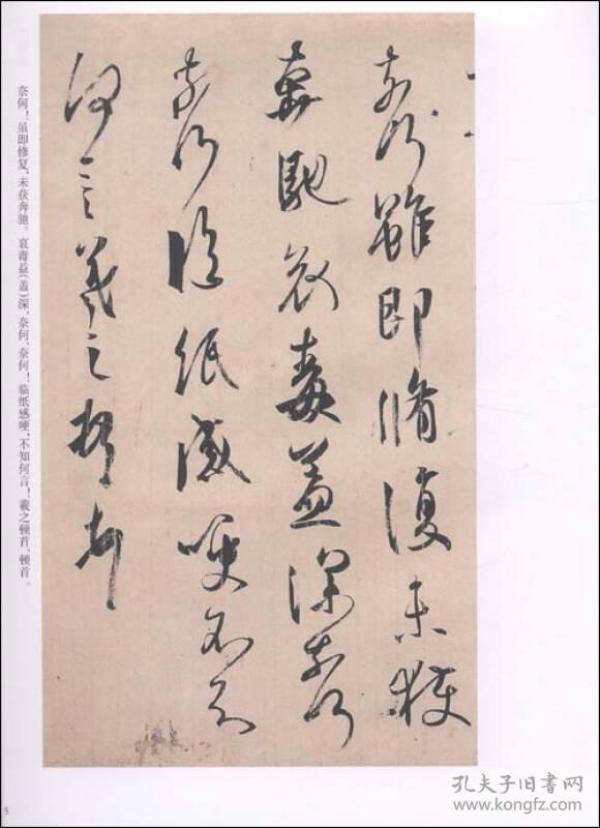 奈何雖即脩復未獲
奔馳哀毒益深奈何
奈何臨紙感哽不知
何言羲之頓首
奈何！虽即修复，未获奔驰。哀毒益（盖）深，奈何、奈何！临纸感哽，不知何言！羲之顿首、顿首。
5
孔夫子旧书网
www.kongfz.com